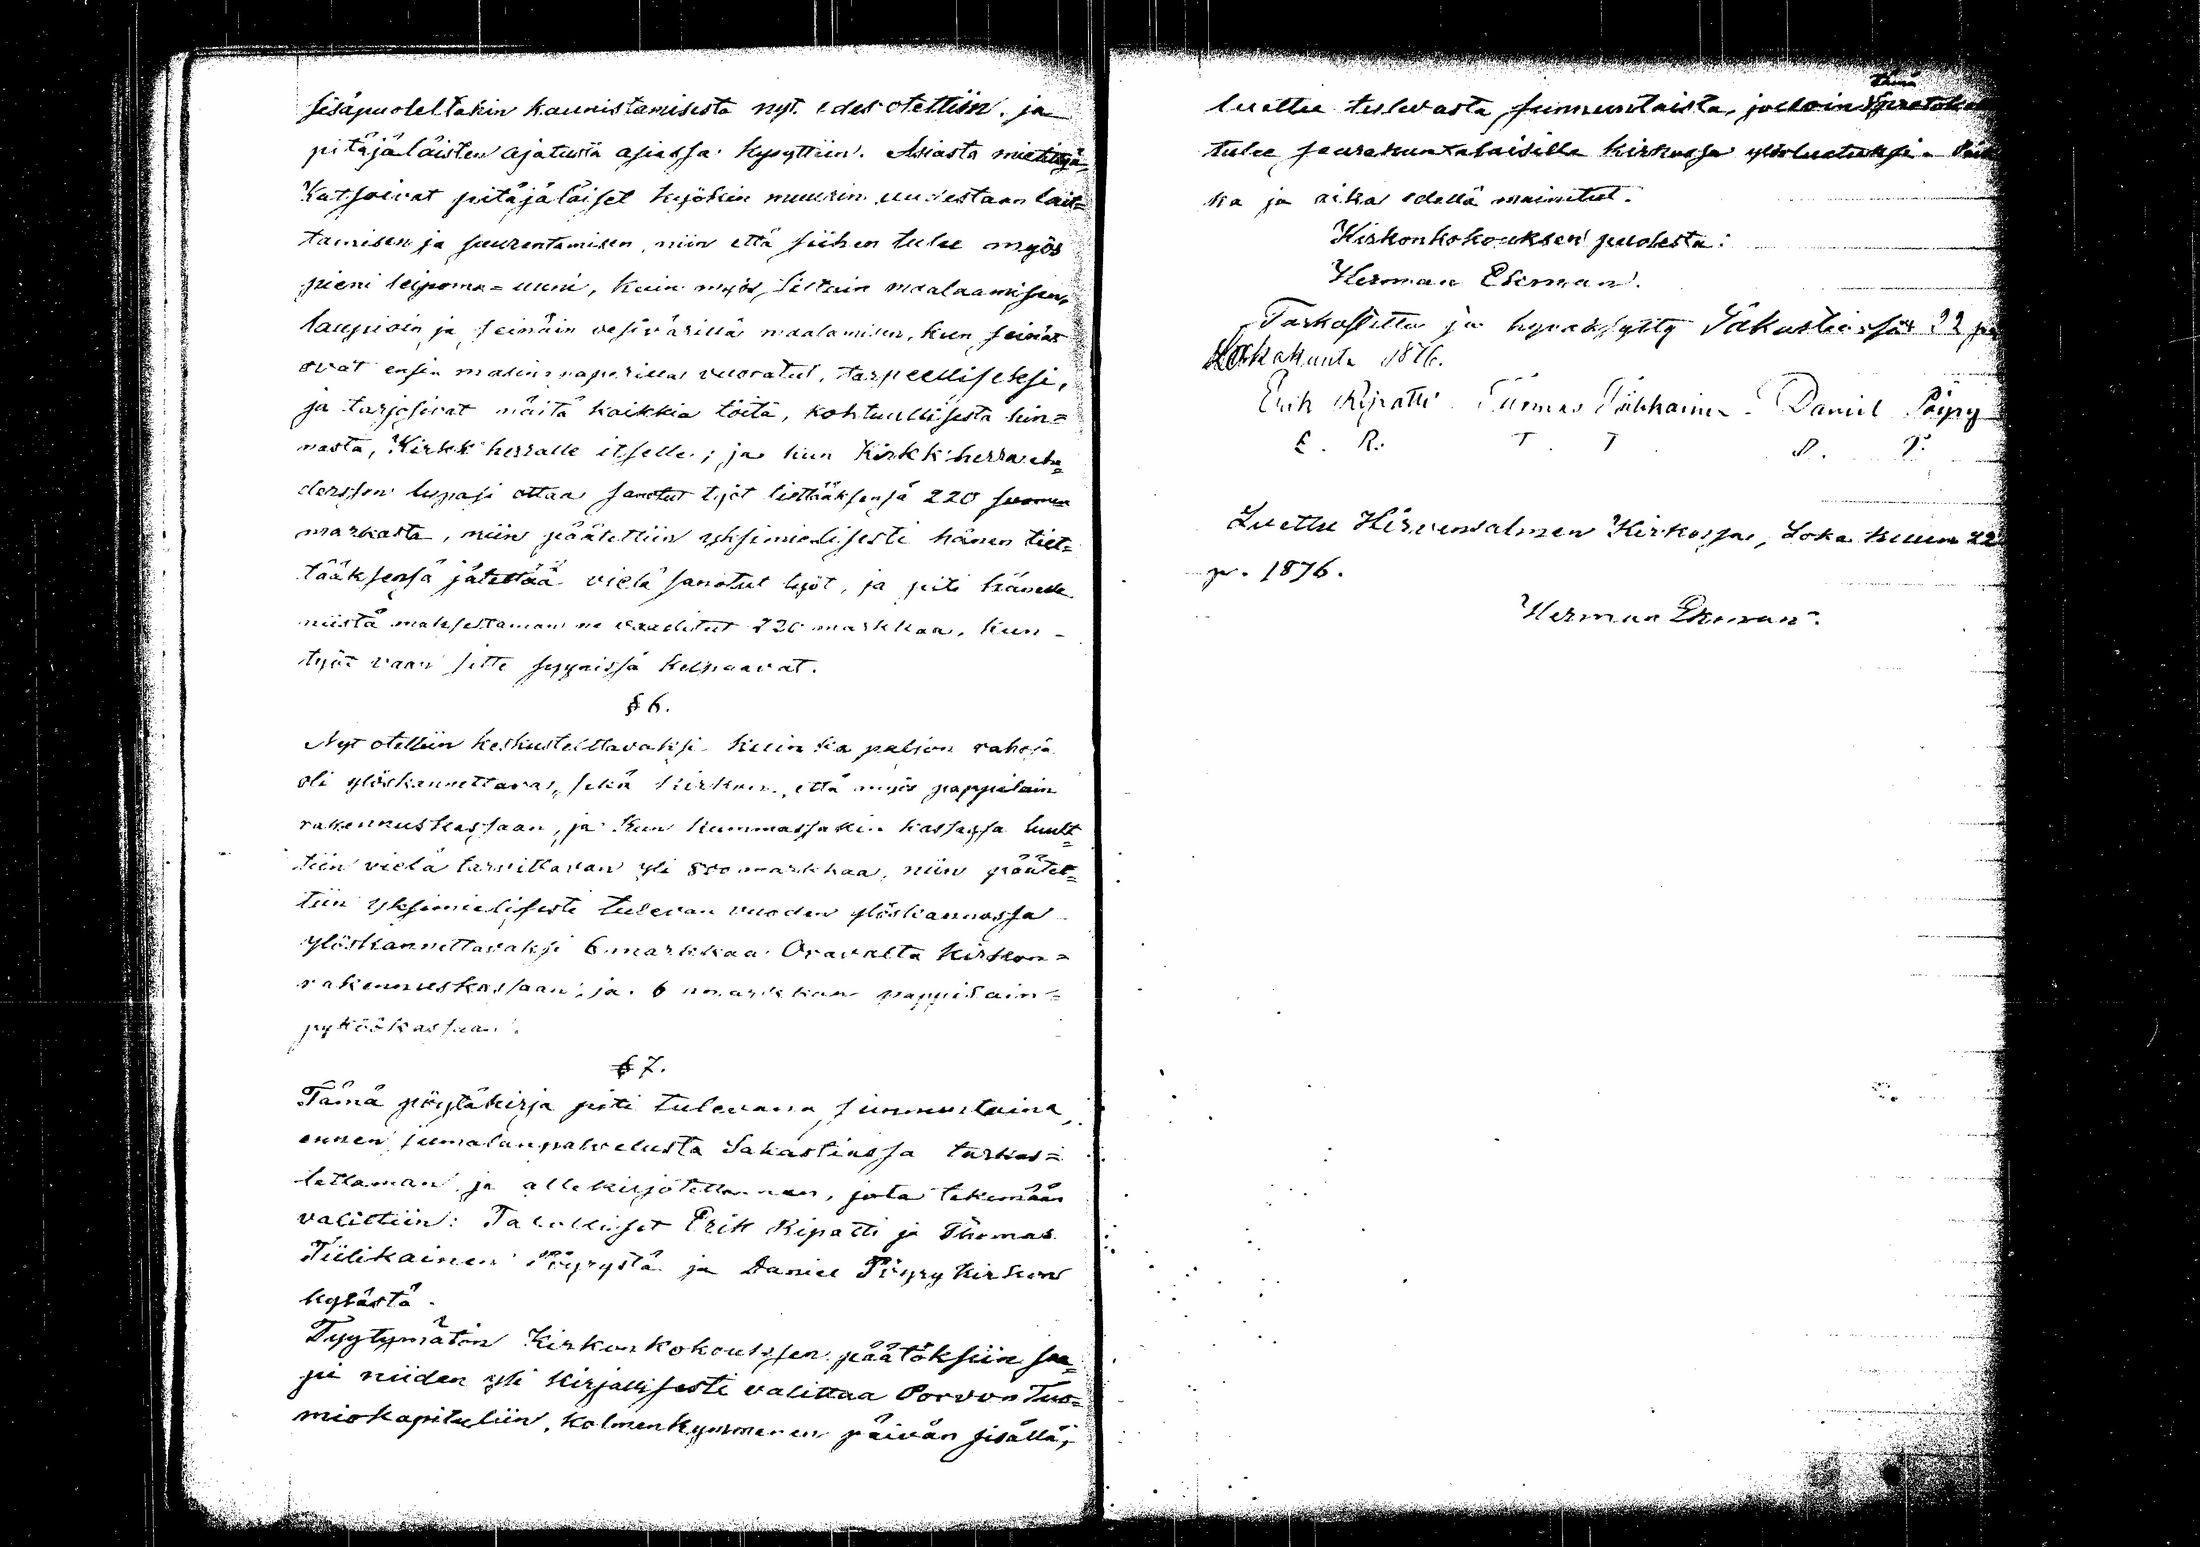 sisäpuoleltakin kaunistamisesta nyt edes otettiin ja
pitäjäläisten ajatusta asiassa kysyttiin. Asiasta
Katsoivat pitäjäläiset kyökin muurin uudestaan lait=
tamisen ja suurentamisen, niin että siihen tulee myös
pieni leipoma=uuni, kuin myös maalaamisen,
laupioin ja seinäin vesivärillä maalamisen, kun seinät
ovat ensin vuoratut, tarpeelliseksi,
ja tarjosivat näitä kaikkia töitä, kohtuullisesta hin=
nasta, Kirkk herralle itselle; ja kun Kirkk herra
lupasi ottaa sanotut työt 220 suomen
markasta, niin päätettiin yksimielisesti hänen tiet=
tääksensä jätettää vielä sanotut työt, ja piti hänelle
niistä maksettaman ne vaaditut 220 markkaa, kun
työt vaan sitte syynissä kelpaavat.
§ 6.
Nyt otettiin keskusteltavaksi kuinka paljon rahoja
oli ylöskannettava, sekä kirkon, että myös pappilain
rakennuskassaan, ja kun kummassakin kassassa luult=
tiin vielä tarvittavan yli 800 markkaa, niin päätet=
tiin yksimielisesti tulevan vuoden ylöskannossa
ylöskannettavaksi 6 markkaa Oravalta kirkon=
rakennuskassaan, ja 6 markkaa pappilain=
pyköökassaan.
§ 7.
Tämä pöytäkirja piti tulevana sunnuntaina,
ennen jumalanpalvelusta Sakastiassa tarkas=
tettaman ja allekirjotettaman, jota tekemään
valittiin: Talolliset Erik Ripatti ja Thomas
Tiilikainen Pöyrystä ja Daniel Pöyry kirkon
kylästä.
Tyytymätön Kirkonkokouksen päätöksiin saa=
pi niiden yli kirjallisesti valittaa Porvon Tuo=
miokapituliin, kolmenkymmenen päivän sisällä,
luettu tulevasta sunnuntaista, jolloin Tämä
tulee seurakuntalaisille kirkossa ylösluetuksi.
ka ja aika edellä mainitut.
Kirkonkokouksen puolesta:
Herman Ekman.
Tarkastettu ja hyväksytty Sakastiassa 22 p
Lokakuuta 1876.
Erik Ripatti Tuomas Tiilikainen Daniel Pöyry
E. R. T T D. P.
Luettu Hirvensalmen Kirkossa, Loka kuun 22
p. 1876.
Herman Ekman.